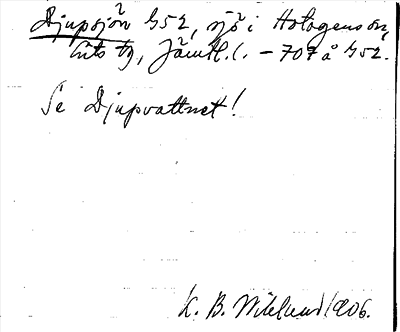 Djupsjön G52, sjö i Hotagens sn,
Lits tg, Jämtl. l. – 707 å G52.
Se Djupvattnet!
K. B. Wiklund 1906.